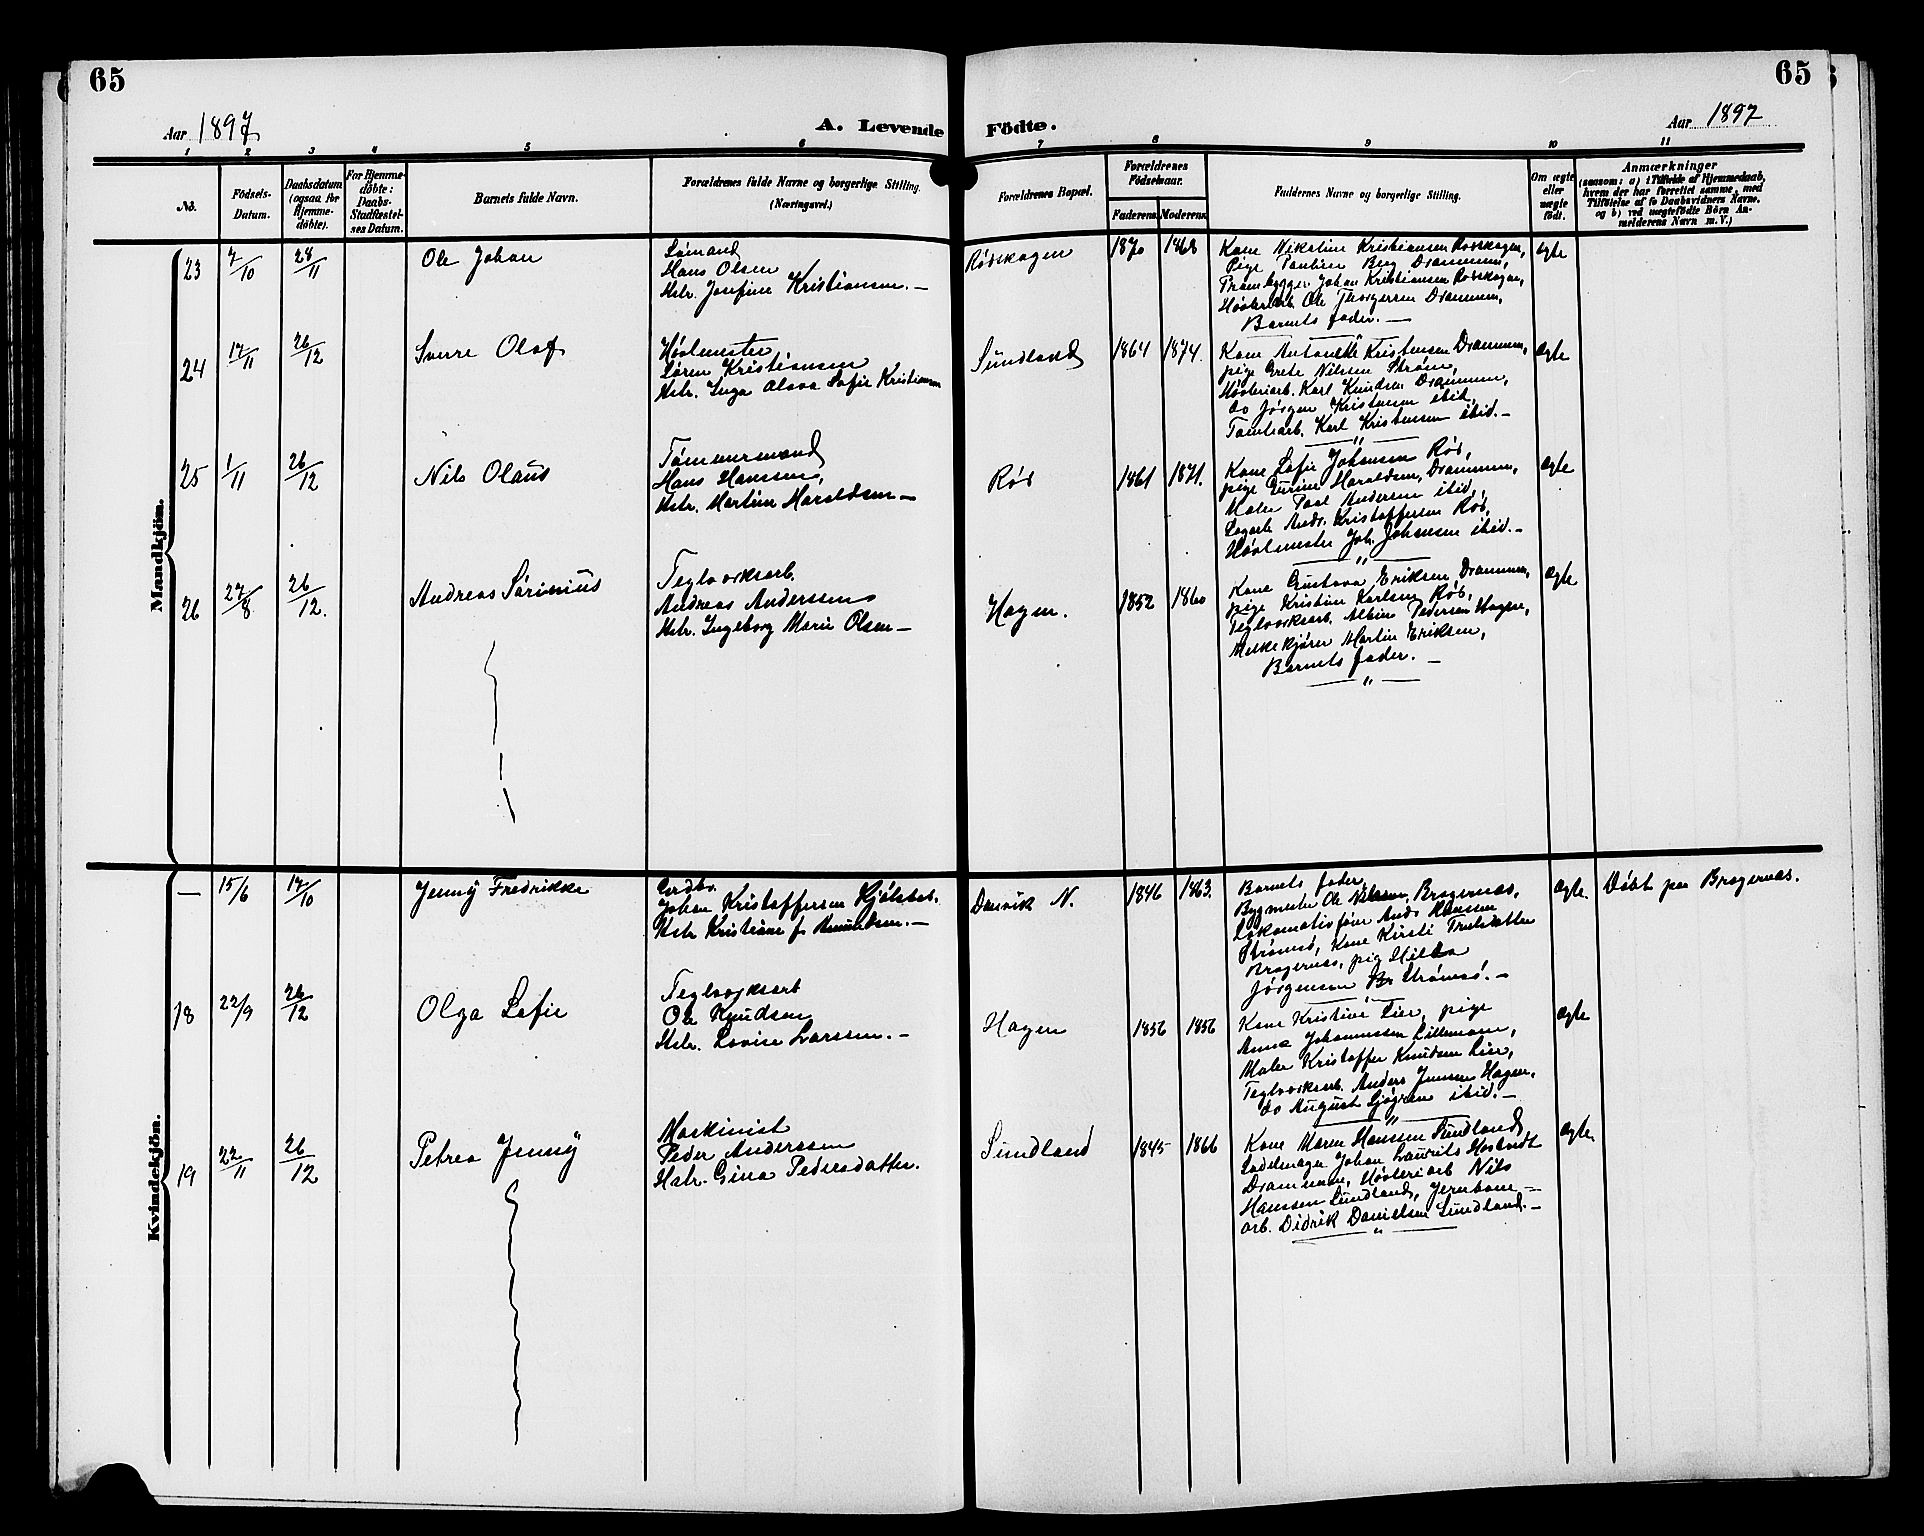 65
65
Aar 1897
A. Levende Fødte.
Aar 1897
1 2 3 4 5 6 7 8 9 10 11
No.
Fødsels-Datum.
Daabsdatum (ogsaa for Hjemme-døbte).
For Hjemme-døbte: Daabs-Stadfæstel-ses Datum.
Barnets fulde Navn.
Forældrenes fulde Navne og borgerlige Stilling.
(Næringsvei.)
Forældrenes Bopæl.
Forældrenes Fødselsaar.
Faderens. Moderens.
Faddernes Navne og borgerlige Stilling.
Om ægte eller uægte født.
Anmærkninger
(saasom: a) i Tilfælde af Hjemmedaab,
hvem der har forrettet samme, med
Tilføielse af to Daabsvidners Navne,
og b) ved uægtefødte Børn An-
melderens Navn m. V.)
Mandkjøn.
23 7/10 28/11 Ole Johan
Sømand
Hans Olsen
Hstr. Josefine Kristiansen. —
Rødskogen 1870 1868
Kone Nikoline Kristiansen Rødskogen,
Pige Pauline Berg Drammen,
Prambygger Johan Kristiansen Rødskogen,
Høvleriarb. Ole Thorgersen Drammen,
Barnets fader. —
ægte
24 17/11 26/12 Sverre Olaf
Høvlmester
Søren Kristiansen
Hstr. Inga Olava Sofie Kristiansen
Sundland 1864 1874.
Kone Antonette Kristensen Drammen,
pige Grete Nilsen Strøm,
Høvleriarb. Karl Knudsen Drammen,
do Jørgen Kristensen ibid,
Tomtearb. Karl Kristensen ibid. —
ægte
25 1/11 26/12 Nils Olaus
Tømmermand
Hans Hansen,
Hstr. Martine Haraldsen —
Rød 1861 1871.
Kone Sofie Johansen Rød,
pige Gurine Haraldsen, Drammen,
Maler Paul Andersen ibid,
Sagarb. Andr. Kristoffersen Rød,
Høvlmester Joh. Johansen ibid. —
ægte
26 27/8 26/12. Andreas Sørinius
Teglværksarb.
Andreas Anderssen
Hstr. Ingeborg Marie Olsen —
Hagen. 1852 1860
Kone Gustava Eriksen, Drammen,
pige Kristine Karlsen Rød,
Teglværksarb. Albin Pedersen Hagen,
Melkekjører Martin Eriksen,
Barnets fader. —
ægte
Kvindekjøn.
— 15/6 17/10 Jenny Fredrikke
Grdbr.
Johan Kristoffersen Kjølstad.
Hstr Kristiane f. Amundsen. —
Danvik N. 1846 1863.
Barnets fader,
Bygmester Ole Nilssen, Bragernæs,
Lokomotivfører Andr Hansen
Strømsø, Kone Kirsti Trulsdatter
Bragernæs, pig Hilda
Jørgensen Br Strømsø. —
ægte.
Døbt paa Bragernæs.
18 22/9 26/12 Olga Sofie
Teglværksarb
Ole Knudsen
Hstr. Lovise Larssen. —
Hagen 1856 1856
Kone Kristine Lier, pige
Anna Johannessen Lillemoen,
Maler Kristoffer Knudsen Lier,
Teglværksarb. Anders Jensen Hagen,
do August Sjøgren ibid. —
ægte
19 22/11 26/12 Petrea Jenny
Maskinist
Peder Anderssen
Hstr. Gina Pedersdatter.
Sundland 1845 1866
Kone Maren Hansen Sundland,
Sadelmager Johan Laurits
Drammen, Høvleriarb Nils
Hansen Sundland, Jernbane-
arb. Didrik Danielsen Sundland. —
ægte.